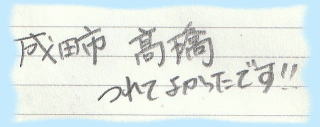 成田市 高橋
つれてよかったです!!